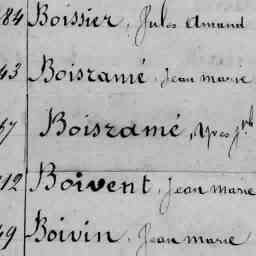 84 Boissier, Jules Amand
43 Boisramé, Jean Marie
67 Boisramé, Yves Jph
112 Boivent, Jean Marie
49 Boivin, Jean Marie